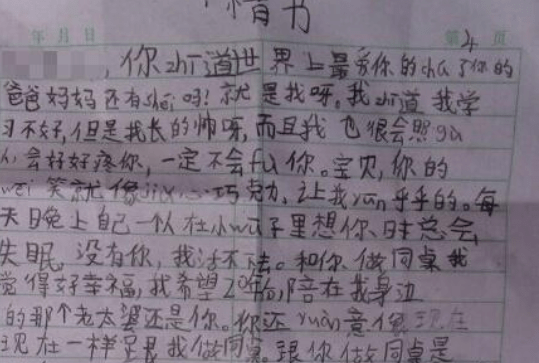 情书
年 月 日 第 4 页
，你zhī道世界上最爱你的chú了你的
爸爸妈妈还有shéi吗！就是我呀。我zhī道我学
习不好，但是我长的帅呀，而且我也很会照gù
人，会好好疼你，一定不会fù你。宝贝，你的
wēi笑就像jiā心巧克力，让我yūn乎乎的。每
天晚上自己一个人在小wū子里想你时总会
失眠，没有你，我活不去。和你做同桌我
觉得好幸福，我希望20年后陪在我身边
的那个老太婆还是你。你还yuàn意像现在
现在一样 我做同桌。跟你做同桌是